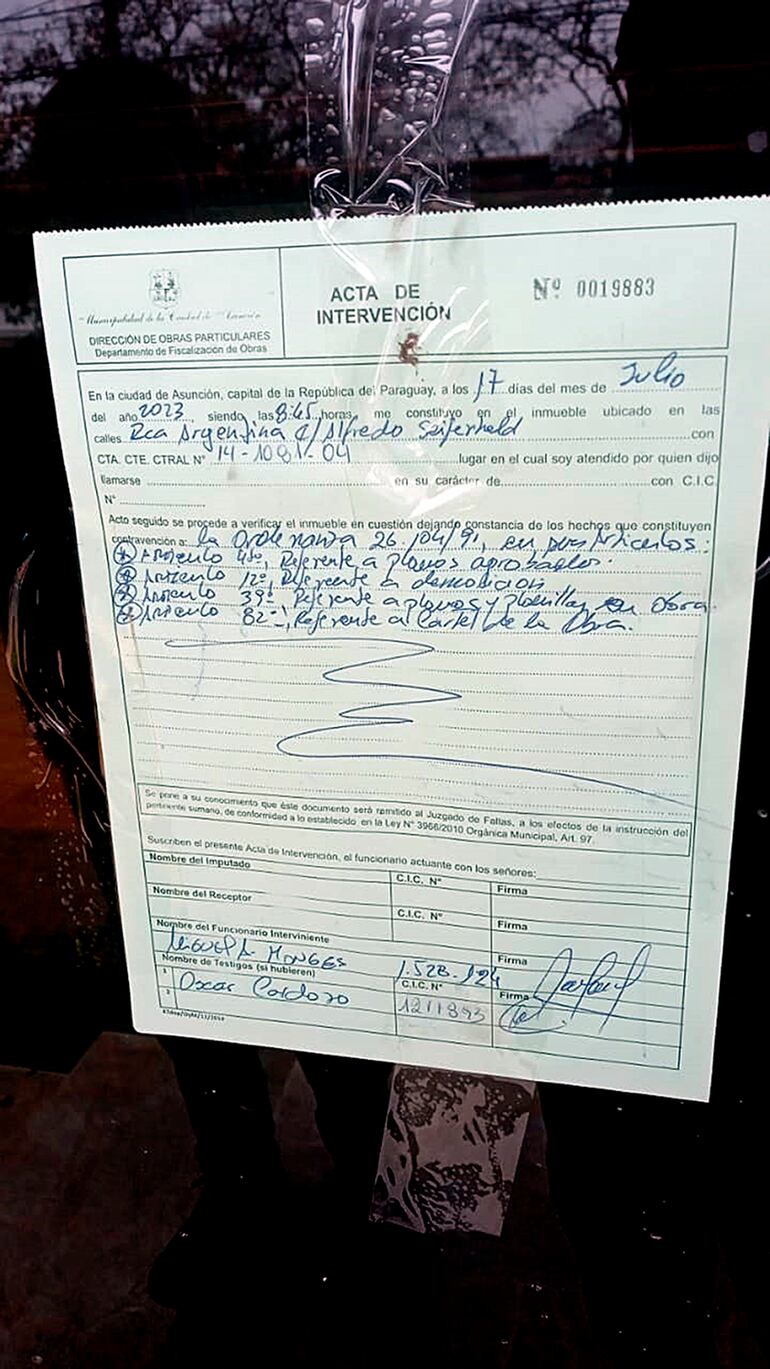 Municipalidad de la Ciudad de Asunción
DIRECCIÓN DE OBRAS PARTICULARES
Departamento de Fiscalización de Obras
ACTA DE
INTERVENCIÓN
Nº 0019883
En la ciudad de Asunción, capital de la República del Paraguay, a los 17 días del mes de Julio
del año 2023 siendo las 8:45 horas, me constituyo en el inmueble ubicado en las
calles Rca Argentina c/ Alfredo Seiferheld con
CTA. CTE. CTRAL N° 14-1081-04 lugar en el cual soy atendido por quien dijo
llamarse en su carácter de con C.I.C.
N°
Acto seguido se procede a verificar el inmueble en cuestión dejando constancia de los hechos que constituyen
contravención a: la Ordenanza 26.104/91, en sus Artículos:
Artículo 4to, Referente a planos aprobados.
Artículo 12º, Referente a demolición
Artículo 39º Referente a planos y planillas en Obra.
Artículo 82º, Referente al Cartel de la Obra.
Se pone a su conocimiento que éste documento será remitido al Juzgado de Faltas, a los efectos de la instrucción del
pertinente sumario, de conformidad a lo establecido en la Ley N° 3966/2010 Orgánica Municipal, Art. 97.
Suscriben el presente Acta de Intervención, el funcionario actuante con los señores:
Nombre del Imputado C.I.C. N° Firma
Nombre del Receptor C.I.C. N° Firma
Nombre del Funcionario Interviniente Firma
Miguel A. Monges 1.528.124
Nombre de Testigos (si hubieren) C.I.C. N° Firma
1 Oscar Cardozo
2